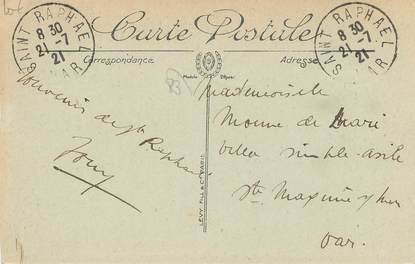 Carte Postale
Correspondance
Adresse
SAINT RAPHAEL
8 30
21 -7
21
VAR
SAINT RAPHAEL
8 30
21 -7
21
VAR
Modèle
Déposé
83
Souvenir de St Raphael
LEVY FILS & Cie PARIS
Mademoiselle
Monne de
Villa simple asile
Ste Maxime s/mer
Var.